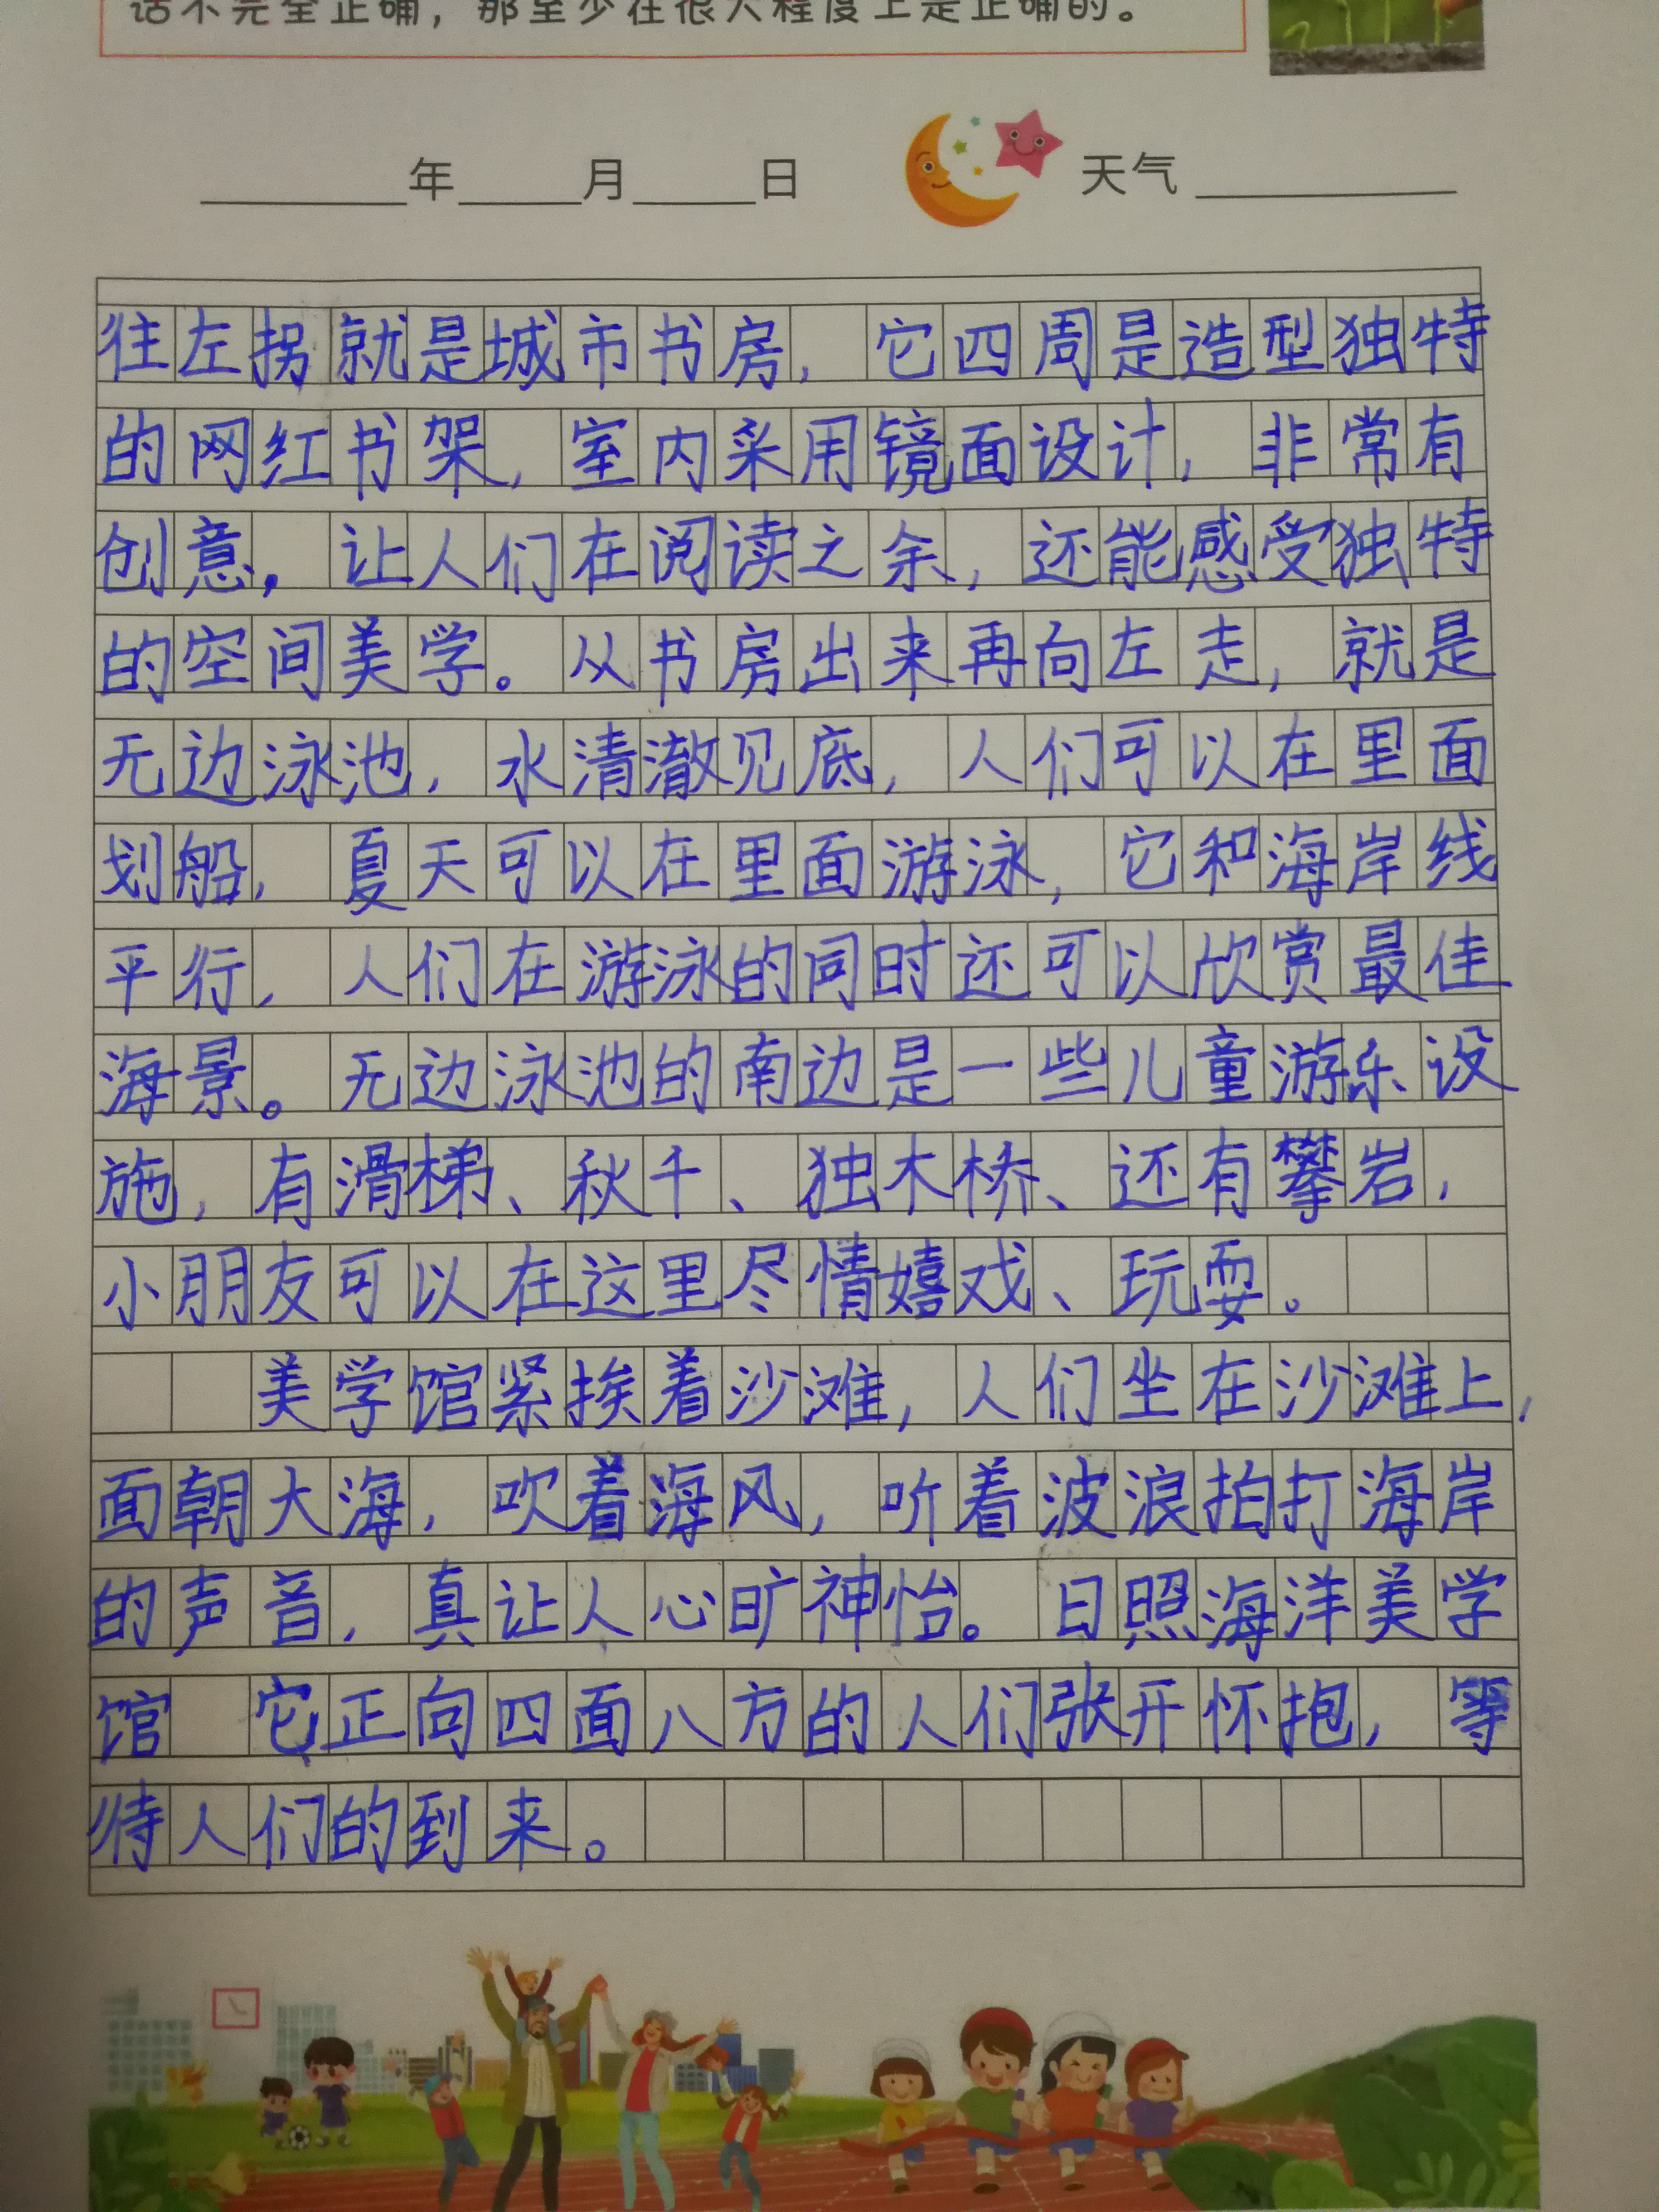 话不完全正确，那至少在很大程度上是正确的。
年 月 日 天气
往左拐就是城市书房，它四周是造型独特
的网红书架，室内采用镜面设计，非常有
创意，让人们在阅读之余，还能感受独特
的空间美学。从书房出来再向左走，就是
无边泳池，水清澈见底，人们可以在里面
划船，夏天可以在里面游泳，它和海岸线
平行，人们在游泳的同时还可以欣赏最佳
海景。无边泳池的南边是一些儿童游乐设
施，有滑梯、秋千、独木桥、还有攀岩，
小朋友可以在这里尽情嬉戏、玩耍。
美学馆紧挨着沙滩，人们坐在沙滩上，
面朝大海，吹着海风，听着波浪拍打海岸
的声音，真让人心旷神怡。日照海洋美学
馆 它正向四面八方的人们张开怀抱，等
待人们的到来。